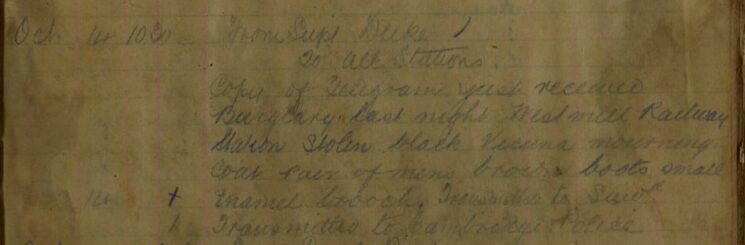 Oct 14 1030 From Supt Duke
To All Stations.
Copy of Telegram just received
Burglary last night Westmill Railway
Station Stolen black Vicuna mourning
Coat pair of mens brown boots small
Enamel brooch. Transmitted to
Transmitted to Cambridge Police